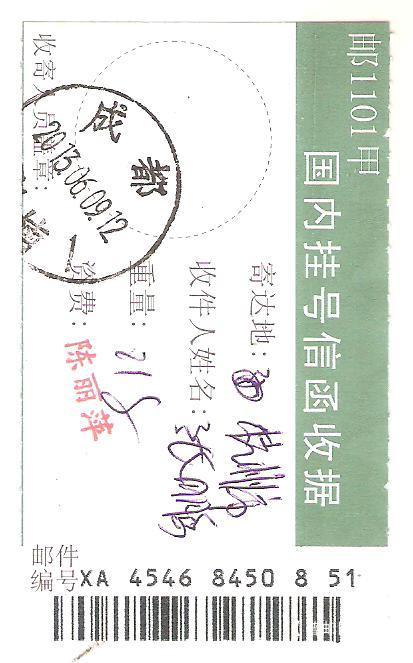 邮1101甲
国内挂号信函收据
寄达地：
收件人姓名：
重量：
资费：
陈丽萍
收寄人员盖章：
成都
2013.06.09.12
邮件
编号XA 4546 8450 8 51